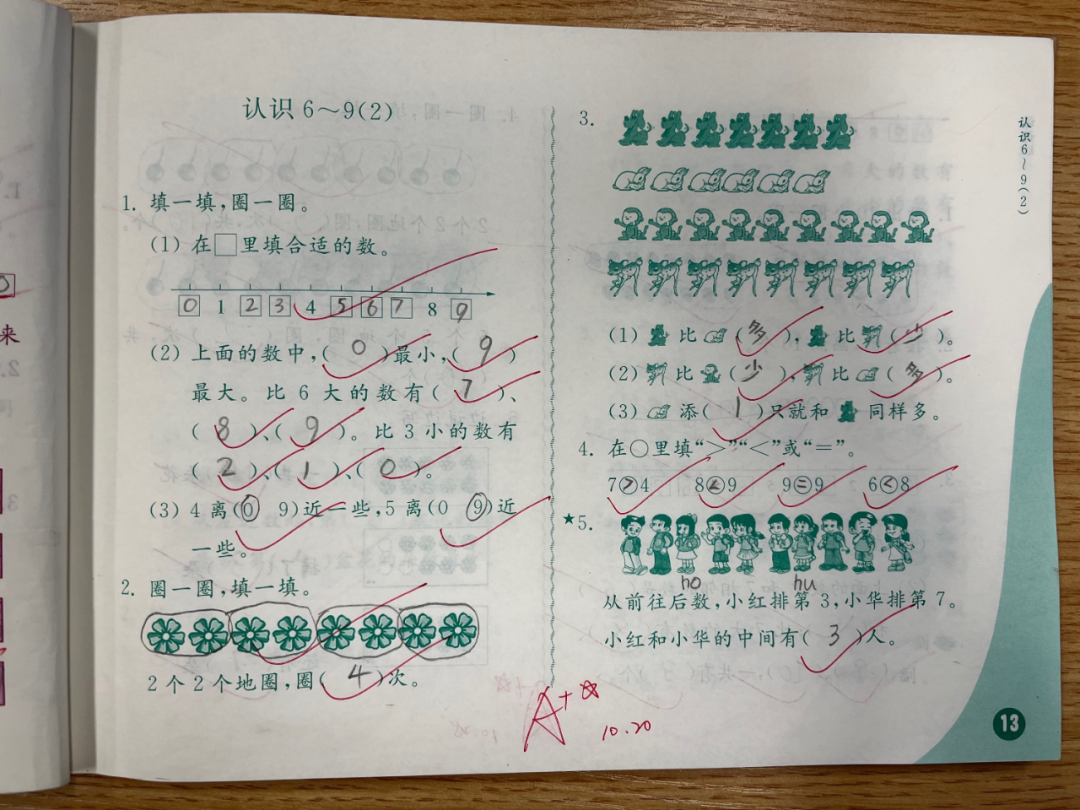 认识6～9(2)
1. 填一填,圈一圈。
(1) 在□里填合适的数。
0 1 2 3 4 5 6 7 8 9
(2) 上面的数中,( 0 )最小,( 9 )
最大。比 6 大的数有( 7 )、
( 8 )、( 9 )。比 3 小的数有
( 2 )、( 1 )、( 0 )。
(3) 4 离(0 9)近一些,5 离(0 9)近
一些。
2. 圈一圈,填一填。
2个2个地圈,圈( 4 )次。
3.
(1) 比 (多), 比 (少)。
(2) 比 (少), 比 (多)。
(3) 添( 1 )只就和 同样多。
4. 在○里填“>”“<”或“=”。
7>4 8<9 9=9 6<8
★5.
ho hu
从前往后数,小红排第 3,小华排第 7。
小红和小华的中间有( 3 )人。
A+☆
10.20
认识6～9(2)
13
来